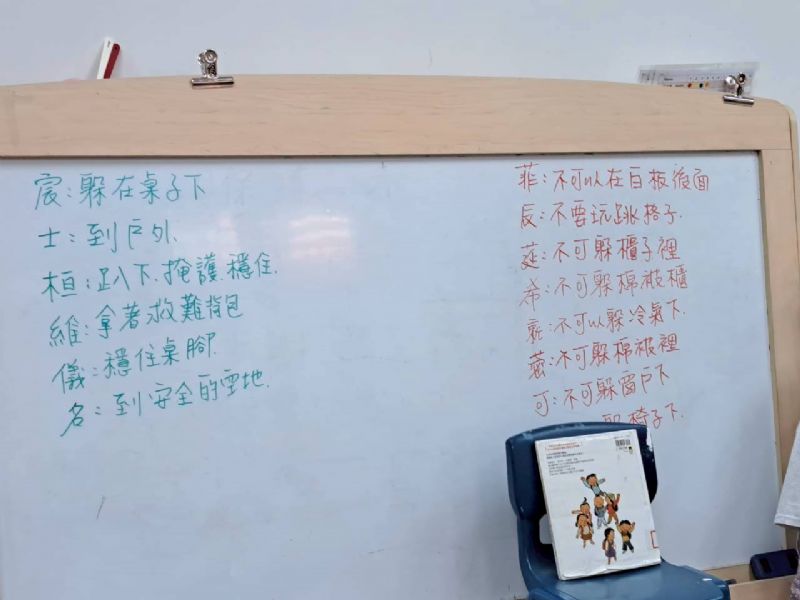 宸:躲在桌子下
士:到戶外.
桓:趴下.掩護.穩住.
維:拿著救難背包
儀:穩住桌腳.
名:到安全的空地.
菲:不可以在白板後面
辰:不要玩跳格子.
莛:不可躲櫃子裡
希:不可躲棉被櫃
:不可以躲冷氣下.
:不可躲棉被裡
可:不可躲窗戶下
躲椅子下.